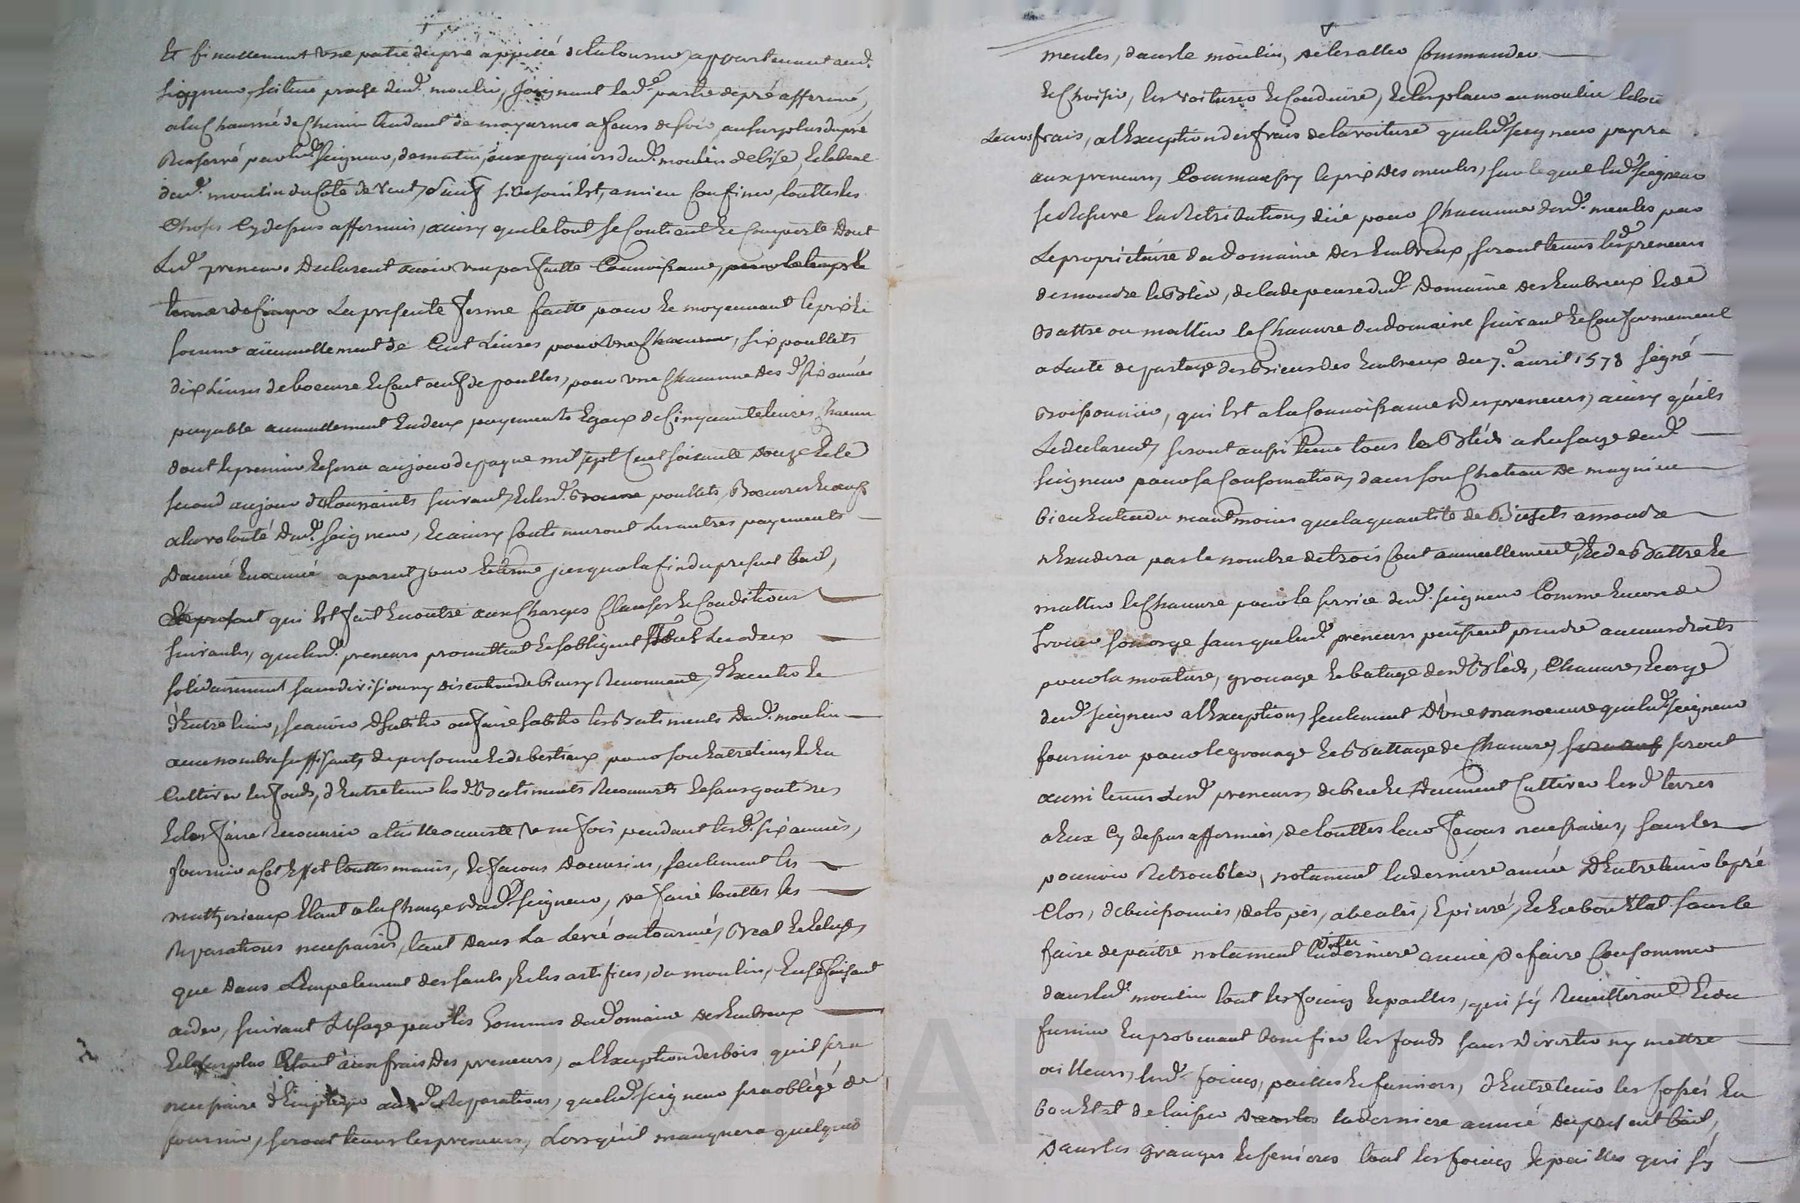 Et finallement une partie du pré appellé de la tourne appartenant aud.
seigneur, scitué proche dud. moulin, joignant lad. partie de pré affermé,
a la Chaussé de Chemin tendant de mayarnes a fours de soir, au surplus du pré
Reservé par led. seigneur, de matin, aux dud. moulin de bise, et le beal
dud. moulin du Coté de vent, sauf si besoin est, a mieu Confiner, touttes les
Choses Cy dessus affermés, ainsy que le tout se Contient et Comporte Dont
Led. preneurs Declarent avoir une parfaitte Connoissance, pour le temps et
terme de Cinq La presente ferme faitte pour et moyennant le prix et
somme annuellement de Cent Livres pour une Chacune, six poullets
dix Livres de beurre et Cent oeufs de poulles, pour une Chacunne des d. six années
payable annuellement En deux payements Egaux de Cinquante livres Chacun
dont le premier se fera au jour de paque mil sept Cent soixante douze Et le
second au jour de Toussaints suivant, Et lesd. poullets, Beurre et oeufs
a la volonté dud. seigneur, Et ainsy Continueront Les autres payements
D'année En année a pareil jour Et terme jusqu'a la fin du present bail,
Le present qui Est fait En outre aux Charges Clauses Et Conditions
suivantes, que lesd. preneurs promettent Et s'obligent Tous Les deux
solidairement sans division ny discution de biens y Renonceant, d'Executer Et
d'Entretenir, scavoir d'habiter ou faire habiter les Batiments dud. moulin
avec nombre suffisants de personne Et de bestiaux pour son Entretien, Et En
Cultiver les fonds, d'Entretenir les d. Batiments Recouverts Et sans goutieres
Et les faire Recouvrir a taille ouverte une fois pendant lesd. six années,
fournir a Cet Effet touttes mains, Et facons D'ouvriers, seulement les
matherieaux Etant a la Charge dud. seigneur, de faire touttes les
Reparations necessaires, tant Dans La Levé ou tourné, Beal Et Ecluse,
que Dans L'Empelement des sauts, Et les artifices du moulin, En se faisant
aider, suivant L'usage par les hommes du domaine des Embreux
Et le surplus Etant aux frais Des preneurs, a l'Exception des bois qu'il sera
necessaire d'Employer auxd. Reparations, que led. seigneur sera obligé de
fournir, seront tenus les preneurs, Lorsqu'il manquera quelques
meules, dans le moulin, de les aller Commander
Et Choisir, les voiturer Et Conduire, Et les placer au moulin le tout
a leurs frais, a l'Exception des frais de la voiture que led. seigneur payera
aux preneurs, Comme aussy le prix des meules, sur lequel led. seigneur
se Reserve la Retribution, düe pour Chacune desd. meules par
Le proprietaire du domaine Des Embreux, seront tenus lesd. preneurs
de moudre le Bled, de la depense dud. Domaine des Embreux Et de
Battre ou mailler le Chanvre du domaine suivant Et Conformement
a L'acte de partage des Biens des Embreux du 7.e avril 1578 signé
Boissonnier, qui Est a la Connoissance des preneurs, ainsy qu'ils
Le declarent, seront aussi tenus tous les Bléds a L'usage dud.
seigneur pour sa Consomation, dans son Chateau De
bien Entendu neantmoins que la quantité de Bichets a moudre
n'Excedera pas le nombre de trois Cent annuellement, Et de Battre Et
mailler le Chanvre pour le service dud. seigneur Comme Encore de
Grouer son orge sans que lesd. preneurs puissent prendre aucuns droits
pour la mouture, grouage Et batage desd. Bleds, Chanvre, Et orge
dud. seigneur a l'Exception, seulement D'une manoeuvre que led. seigneur
fournira pour le grouage Et Battage de Chanvre, seront
aussi tenus Lesd. preneurs de bien Et Deument Cultiver lesd. terres
a Eux Cy dessus affermées, de touttes leurs façons necessaires, sans les
pouvoir Retroubler, notament la derniere année D'Entretenir le pré
Clos, de buissonnés, Epinné, Et En bon Etat sans le
faire depaitre notament la derniere année, de faire Consommer
dans led. moulin tout les foins Et pailles, qui s'y Recuilleront Et du
fumier En provenant bonifier les fonds sans Divertir ny mettre
ailleurs, lesd. foins, pailles Et fumiers, d'Entretenir les fossés En
bon Etat de laisser la derniere année du present bail,
Dans les granges Et fenieres tout les foins Et pailles qui s'y